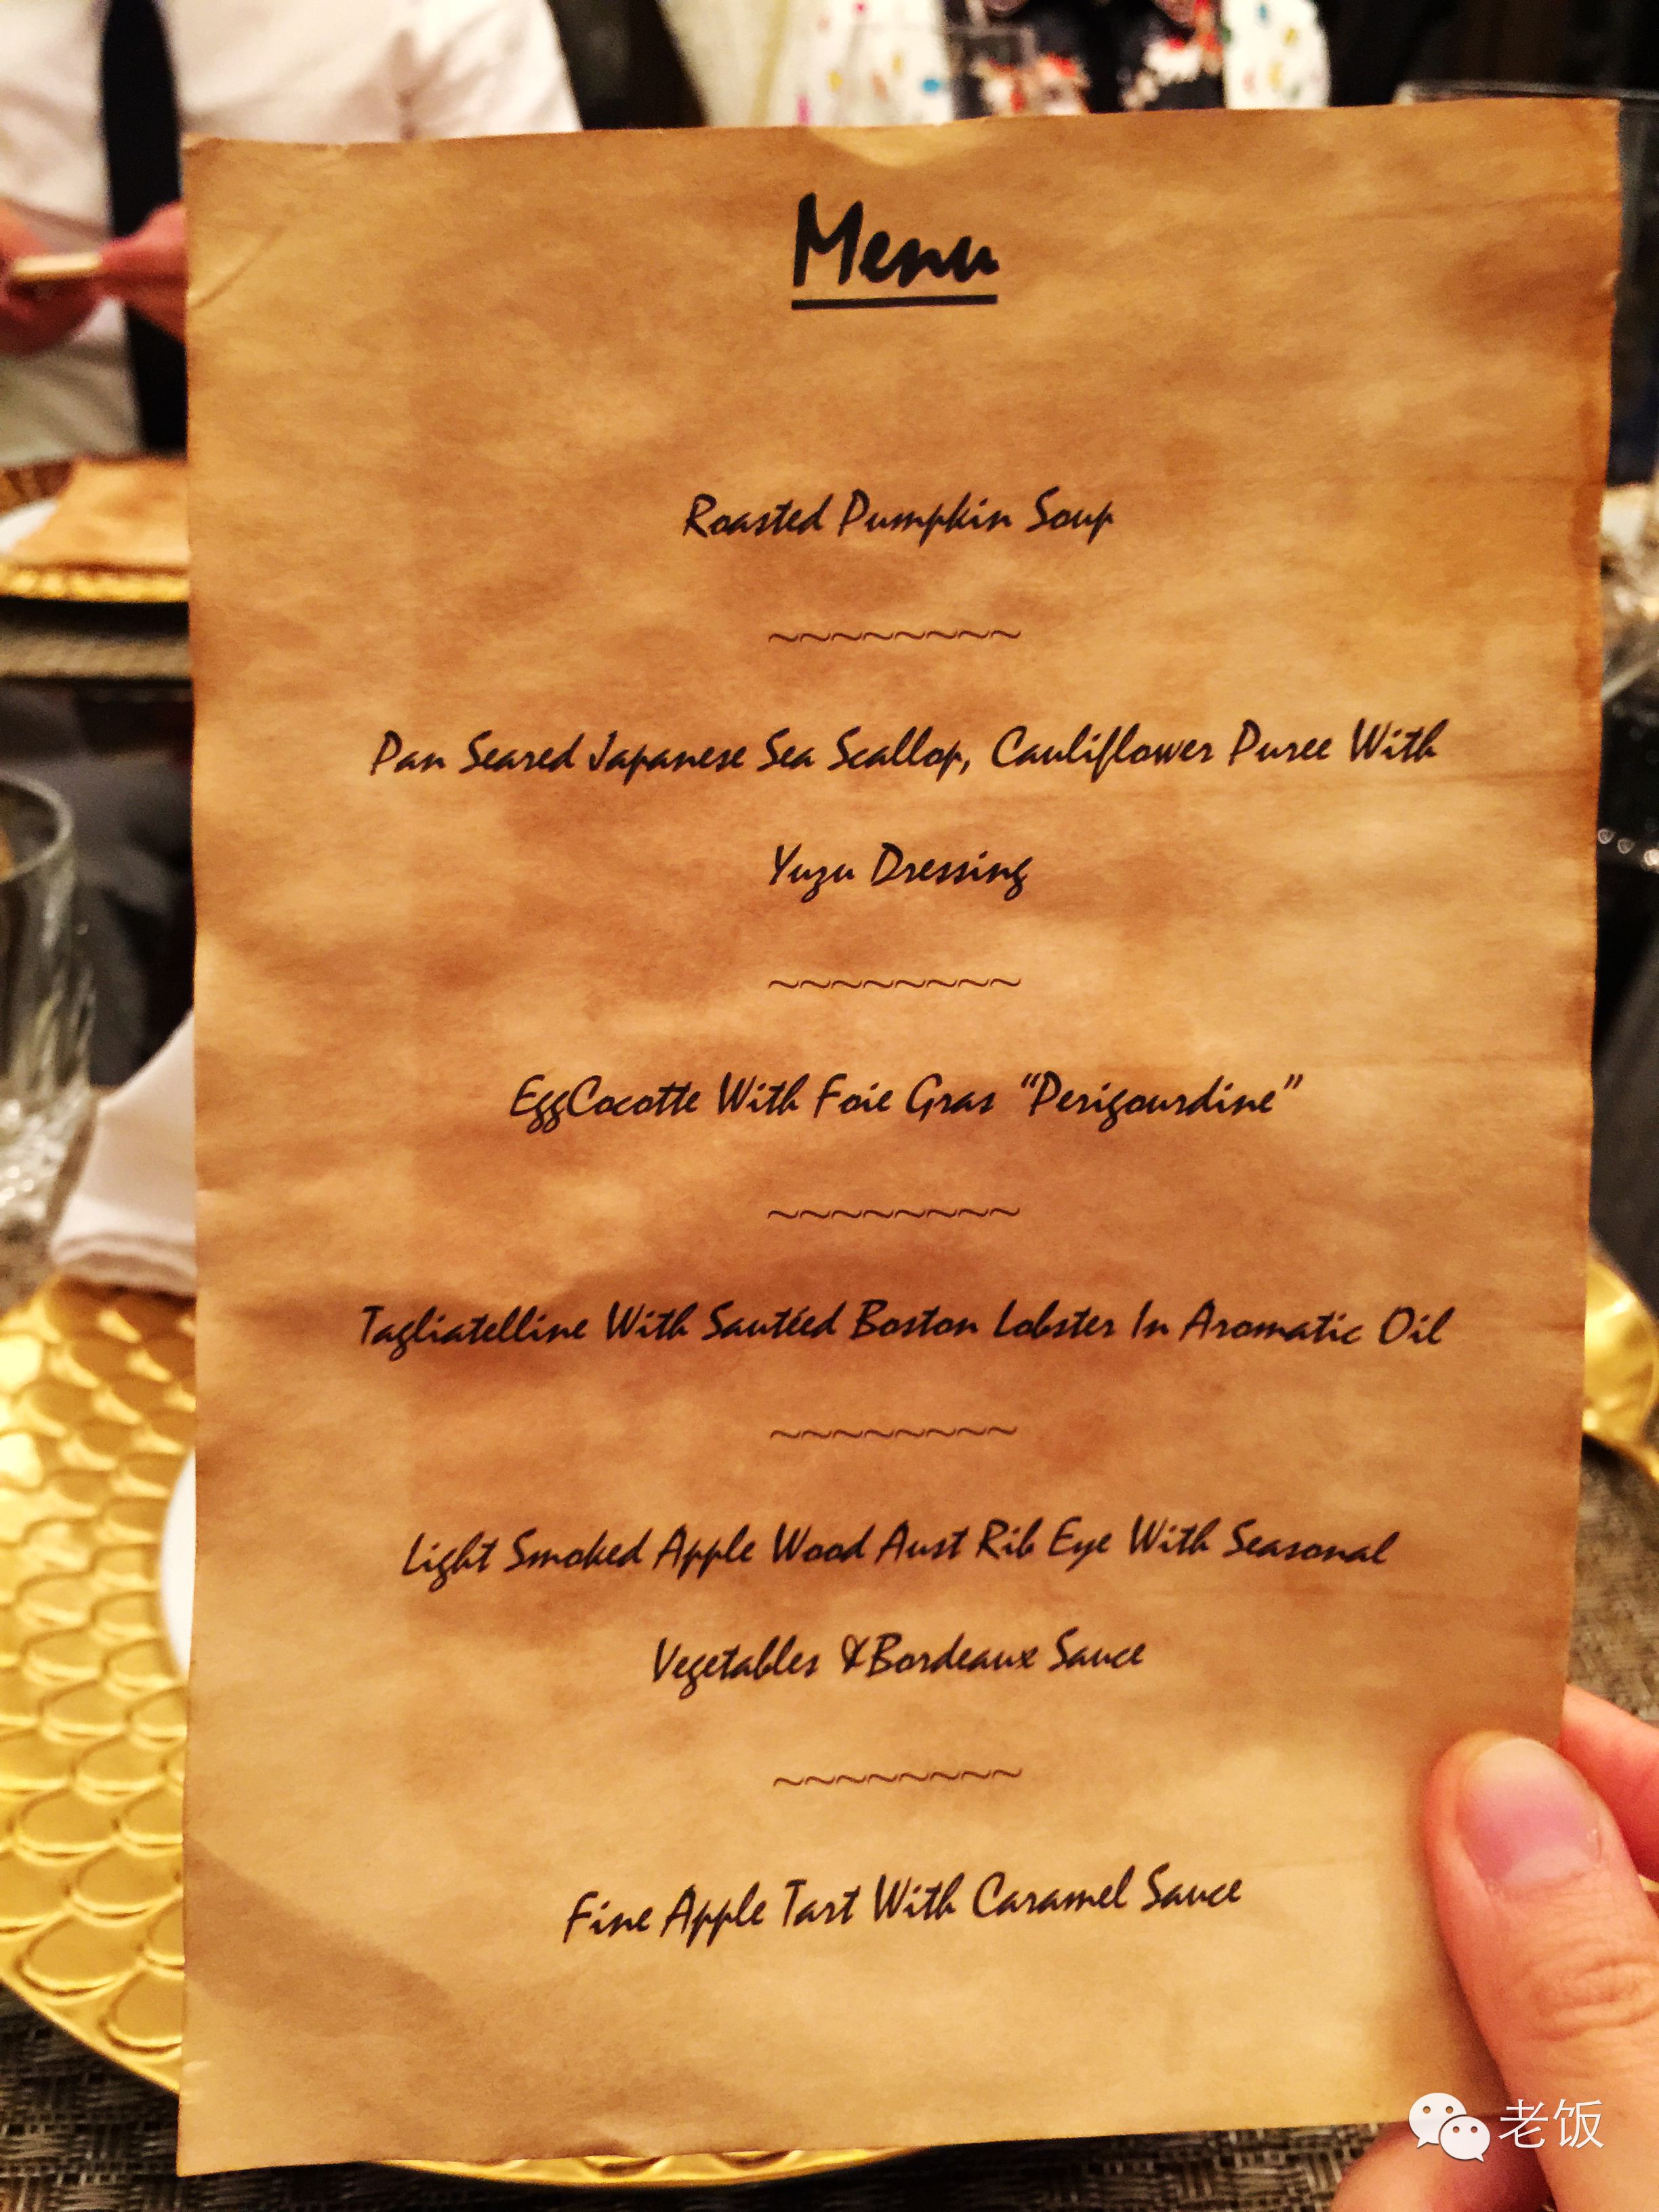 Menu
Roasted Pumpkin Soup
~~~~~~~~
Pan Seared Japanese Sea Scallop, Cauliflower Puree With
Yuzu Dressing
~~~~~~~~
EggCocotte With Foie Gras “Perigourdine”
~~~~~~~~
Tagliatelline With Sautéed Boston Lobster In Aromatic Oil
~~~~~~~~
Light Smoked Apple Wood Aust Rib Eye With Seasonal
Vegetables &Bordeaux Sauce
~~~~~~~~
Fine Apple Tart With Caramel Sauce
老饭